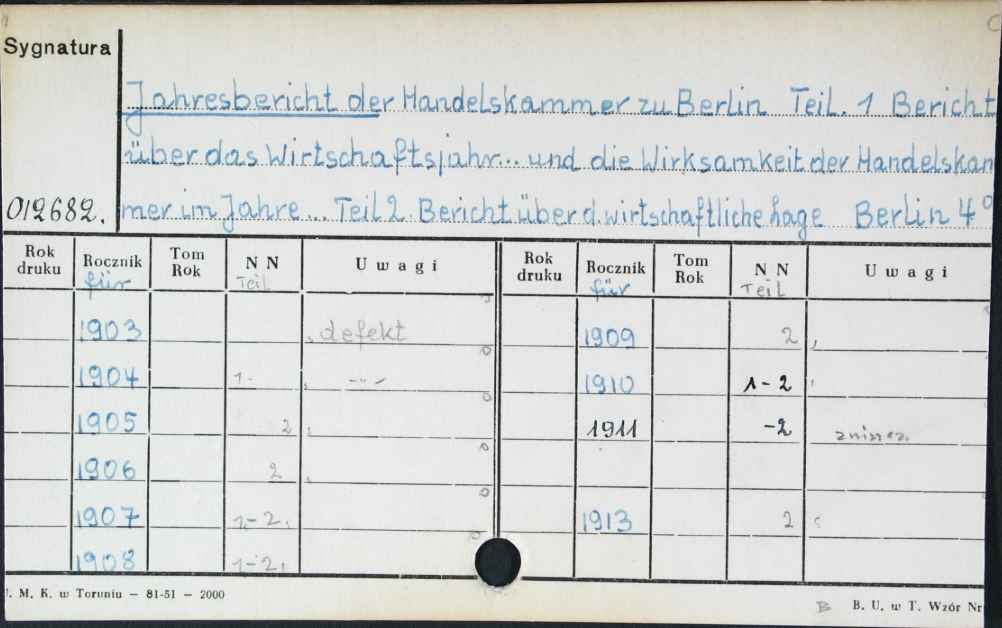 Sygnatura
Jahresbericht der Handelskammer zu Berlin Teil. 1 Bericht
über das Wirtschaftsjahr... und die Wirksamkeit der Handelskam
012682. mer im Jahre... Teil 2. Bericht über d. wirtschaftliche Lage Berlin 4°
Rok druku Rocznik für Tom Rok N N Teil Uwagi Rok druku Rocznik für Tom Rok N N Teil Uwagi
1903 defekt 1909 2
1904 1. -"- 1910 1-2
1905 2 1911 -2 zniszcz.
1906 2
1907 1-2. 1913 2
1908 1-2.
. M. K. w Toruniu — 81-51 — 2000 B B. U. w T. Wzór Nr